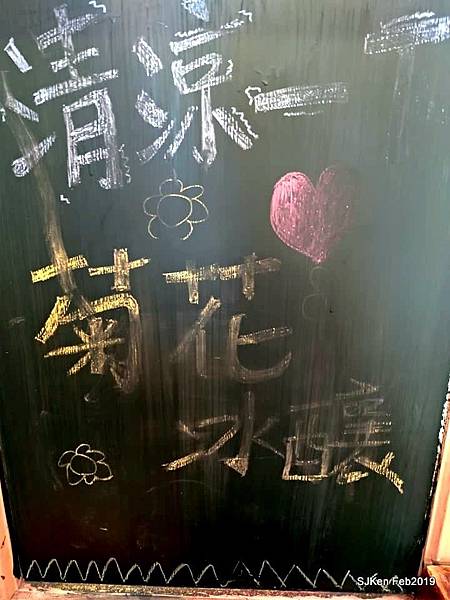 清涼一下
菊花
冰釀
SJKen Feb2019